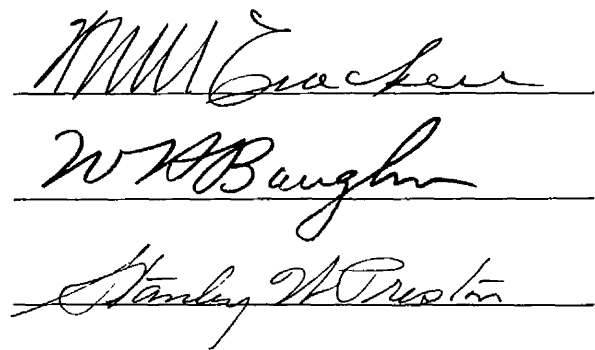 Crocker
W H Baughn
Stanley W Preston